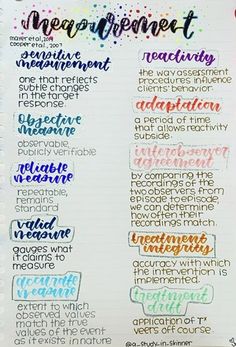 measurement
mayer et al., 2019
cooper et al., 2007
sensitive
measurement
one that reflects
subtle changes
in the target
response.
objective
measure
observable,
publicly verifiable
reliable
measure
repeatable,
remains
standard.
valid
measure
gauges what
it claims to
measure
accurate
measure
extent to which
observed values
match the true
values of the event
as it exists in nature
reactivity
the way assessment
procedures influence
clients' behavior.
adaptation
a period of time
that allows reactivity
subside.
interobserver
agreement
by comparing the
recordings of the
two observers from
episode to episode,
we can determine
how often their
recordings match.
treatment
integrity
accuracy with which
the intervention is
implemented.
treatment
drift
application of "I"
veers off course.
@a_study_in_skinner